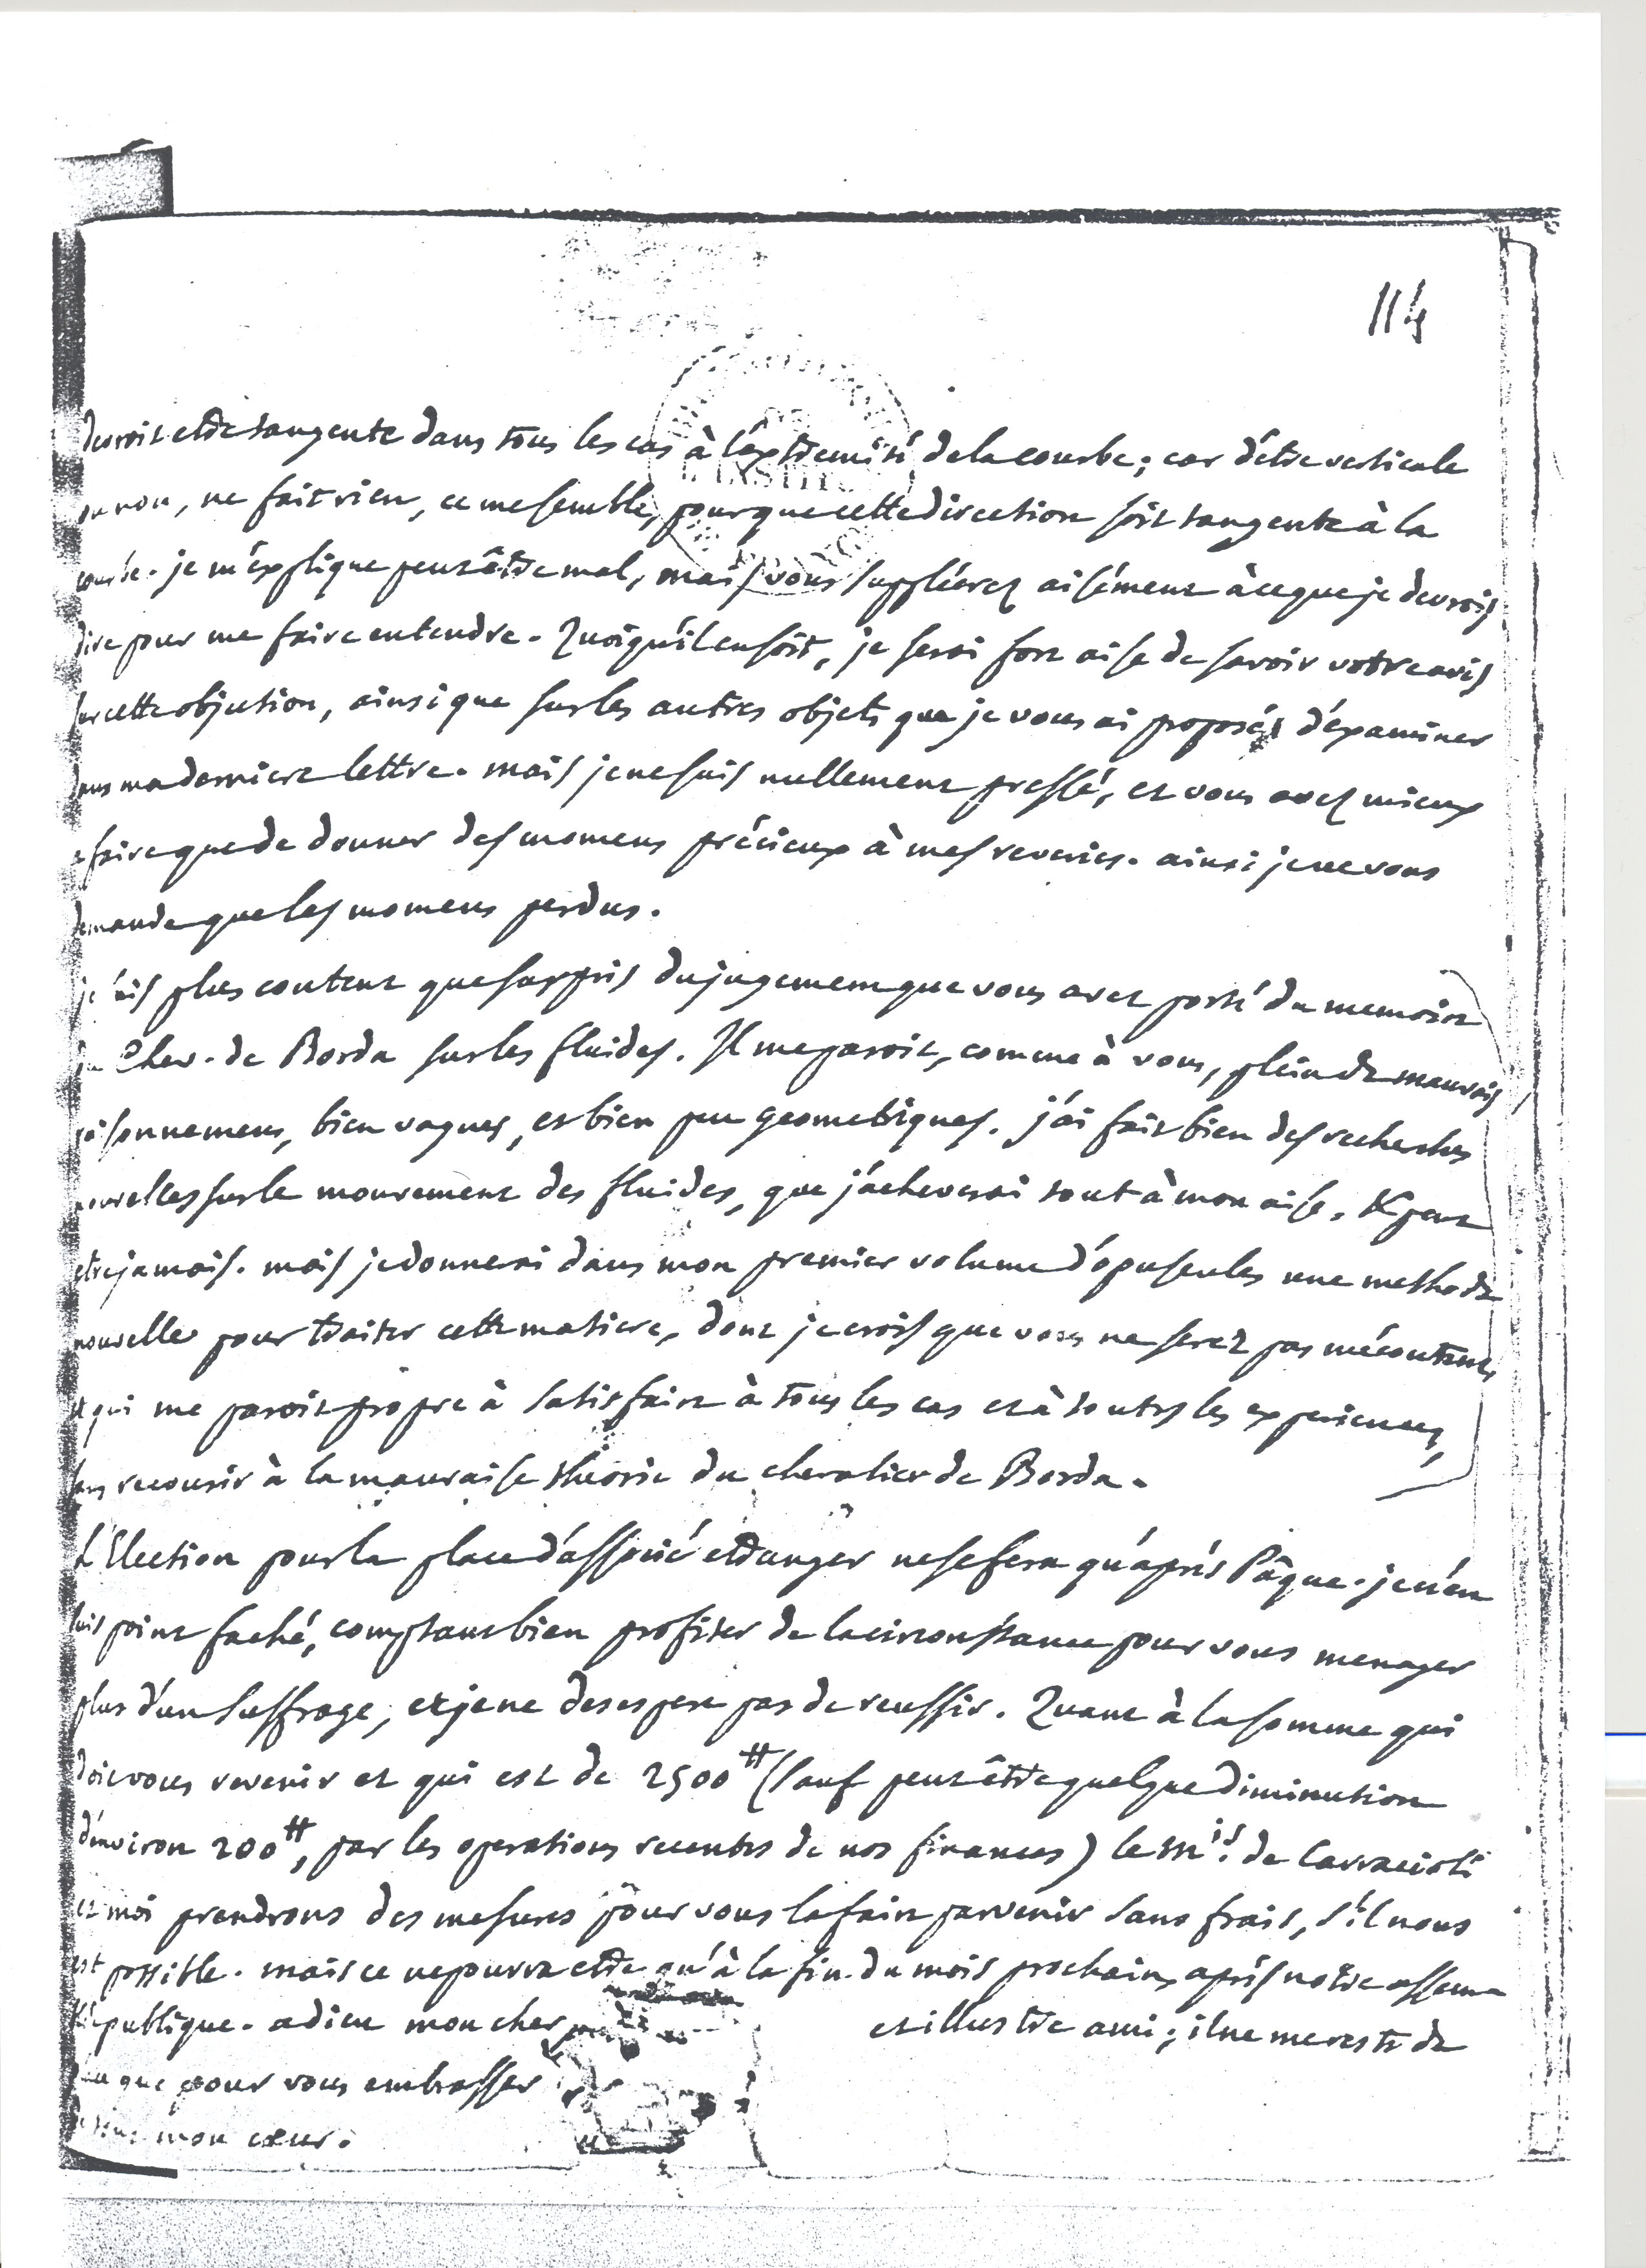 114
devroit etre tangente dans tous les cas à l'extremité de la courbe; car d'être verticale
ou non, ne fait rien, ce me semble, pour que cette direction soit tangente à la
courbe. je m'explique peut être mal, mais vous suppléerez aisément à ce que je devrois
dire pour me faire entendre. Quoiqu'il en soit, je serai fort aise de savoir votre avis
sur cette objection, ainsi que sur les autres objets que je vous ai proposés d'examiner
dans ma derniere lettre. mais je ne suis nullement pressé, et vous avez mieux
à faire que de donner des momens précieux à mes reveries. ainsi je ne vous
demande que les momens perdus.
je suis plus content que surpris du jugement que vous avez porté du memoire
du Chev. de Borda sur les fluides. Il me paroit, comme à vous, plein de mauvais
raisonnemens, bien vagues, et bien peu geometriques. j'ai fait bien des recherches
nouvelles sur le mouvement des fluides, que j'acheverai tout à mon aise, & peut
etre jamais. mais je donnerai dans mon premier volume d'opuscules une methode
nouvelle pour traiter cette matiere, dont je crois que vous ne serez pas mécontent,
et qui me paroit propre à satisfaire à tous les cas et à toutes les experiences,
sans recourir à la mauvaise theorie du chevalier de Borda.
L'Election pour la place d'associé etranger ne se fera qu'après Pâque. je n'en
suis point faché, comptant bien profiter de la circonstance pour vous menager
plus d'un suffrage, et je ne desespere pas de reussir. Quant à la somme qui
doit vous revenir et qui est de 2500 ₶ (sauf peut être quelque diminution
d'environ 200 ₶, par les operations recentes de nos finances) le Mis. de Carracioli
et moi prendrons des mesures pour vous la faire parvenir sans frais, s'il nous
est possible. mais ce ne pourra etre qu'à la fin du mois prochain, après notre assem
blée publique. adieu mon cher et illustre ami; il ne me reste de
lieu que pour vous embrasser
de tout mon cœur.